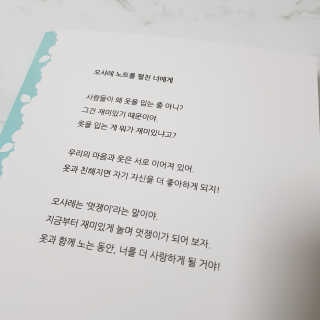 오샤레 노트를 펼친 너에게
사람들이 왜 옷을 입는 줄 아니?
그건 재미있기 때문이야.
옷을 입는 게 뭐가 재미있냐고?
우리의 마음과 옷은 서로 이어져 있어.
옷과 친해지면 자기 자신을 더 좋아하게 되지!
오샤레는 '멋쟁이'라는 말이야.
지금부터 재미있게 놀며 멋쟁이가 되어 보자.
옷과 함께 노는 동안, 너를 더 사랑하게 될 거야!